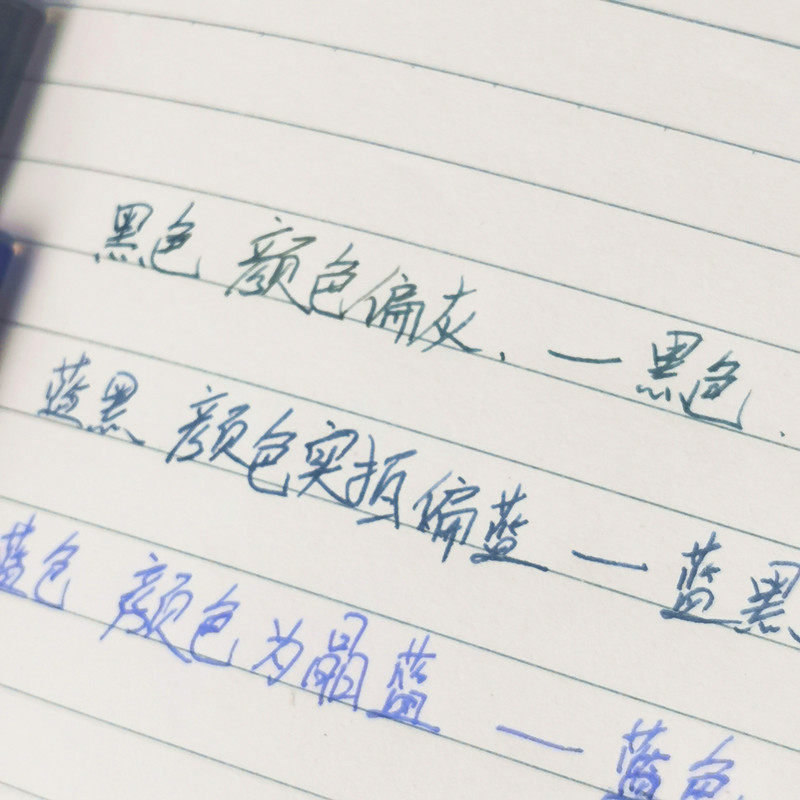 黑色 颜色偏灰. — 黑色.
蓝黑 颜色实拍偏蓝 — 蓝黑
蓝色 颜色为晶蓝 — 蓝色